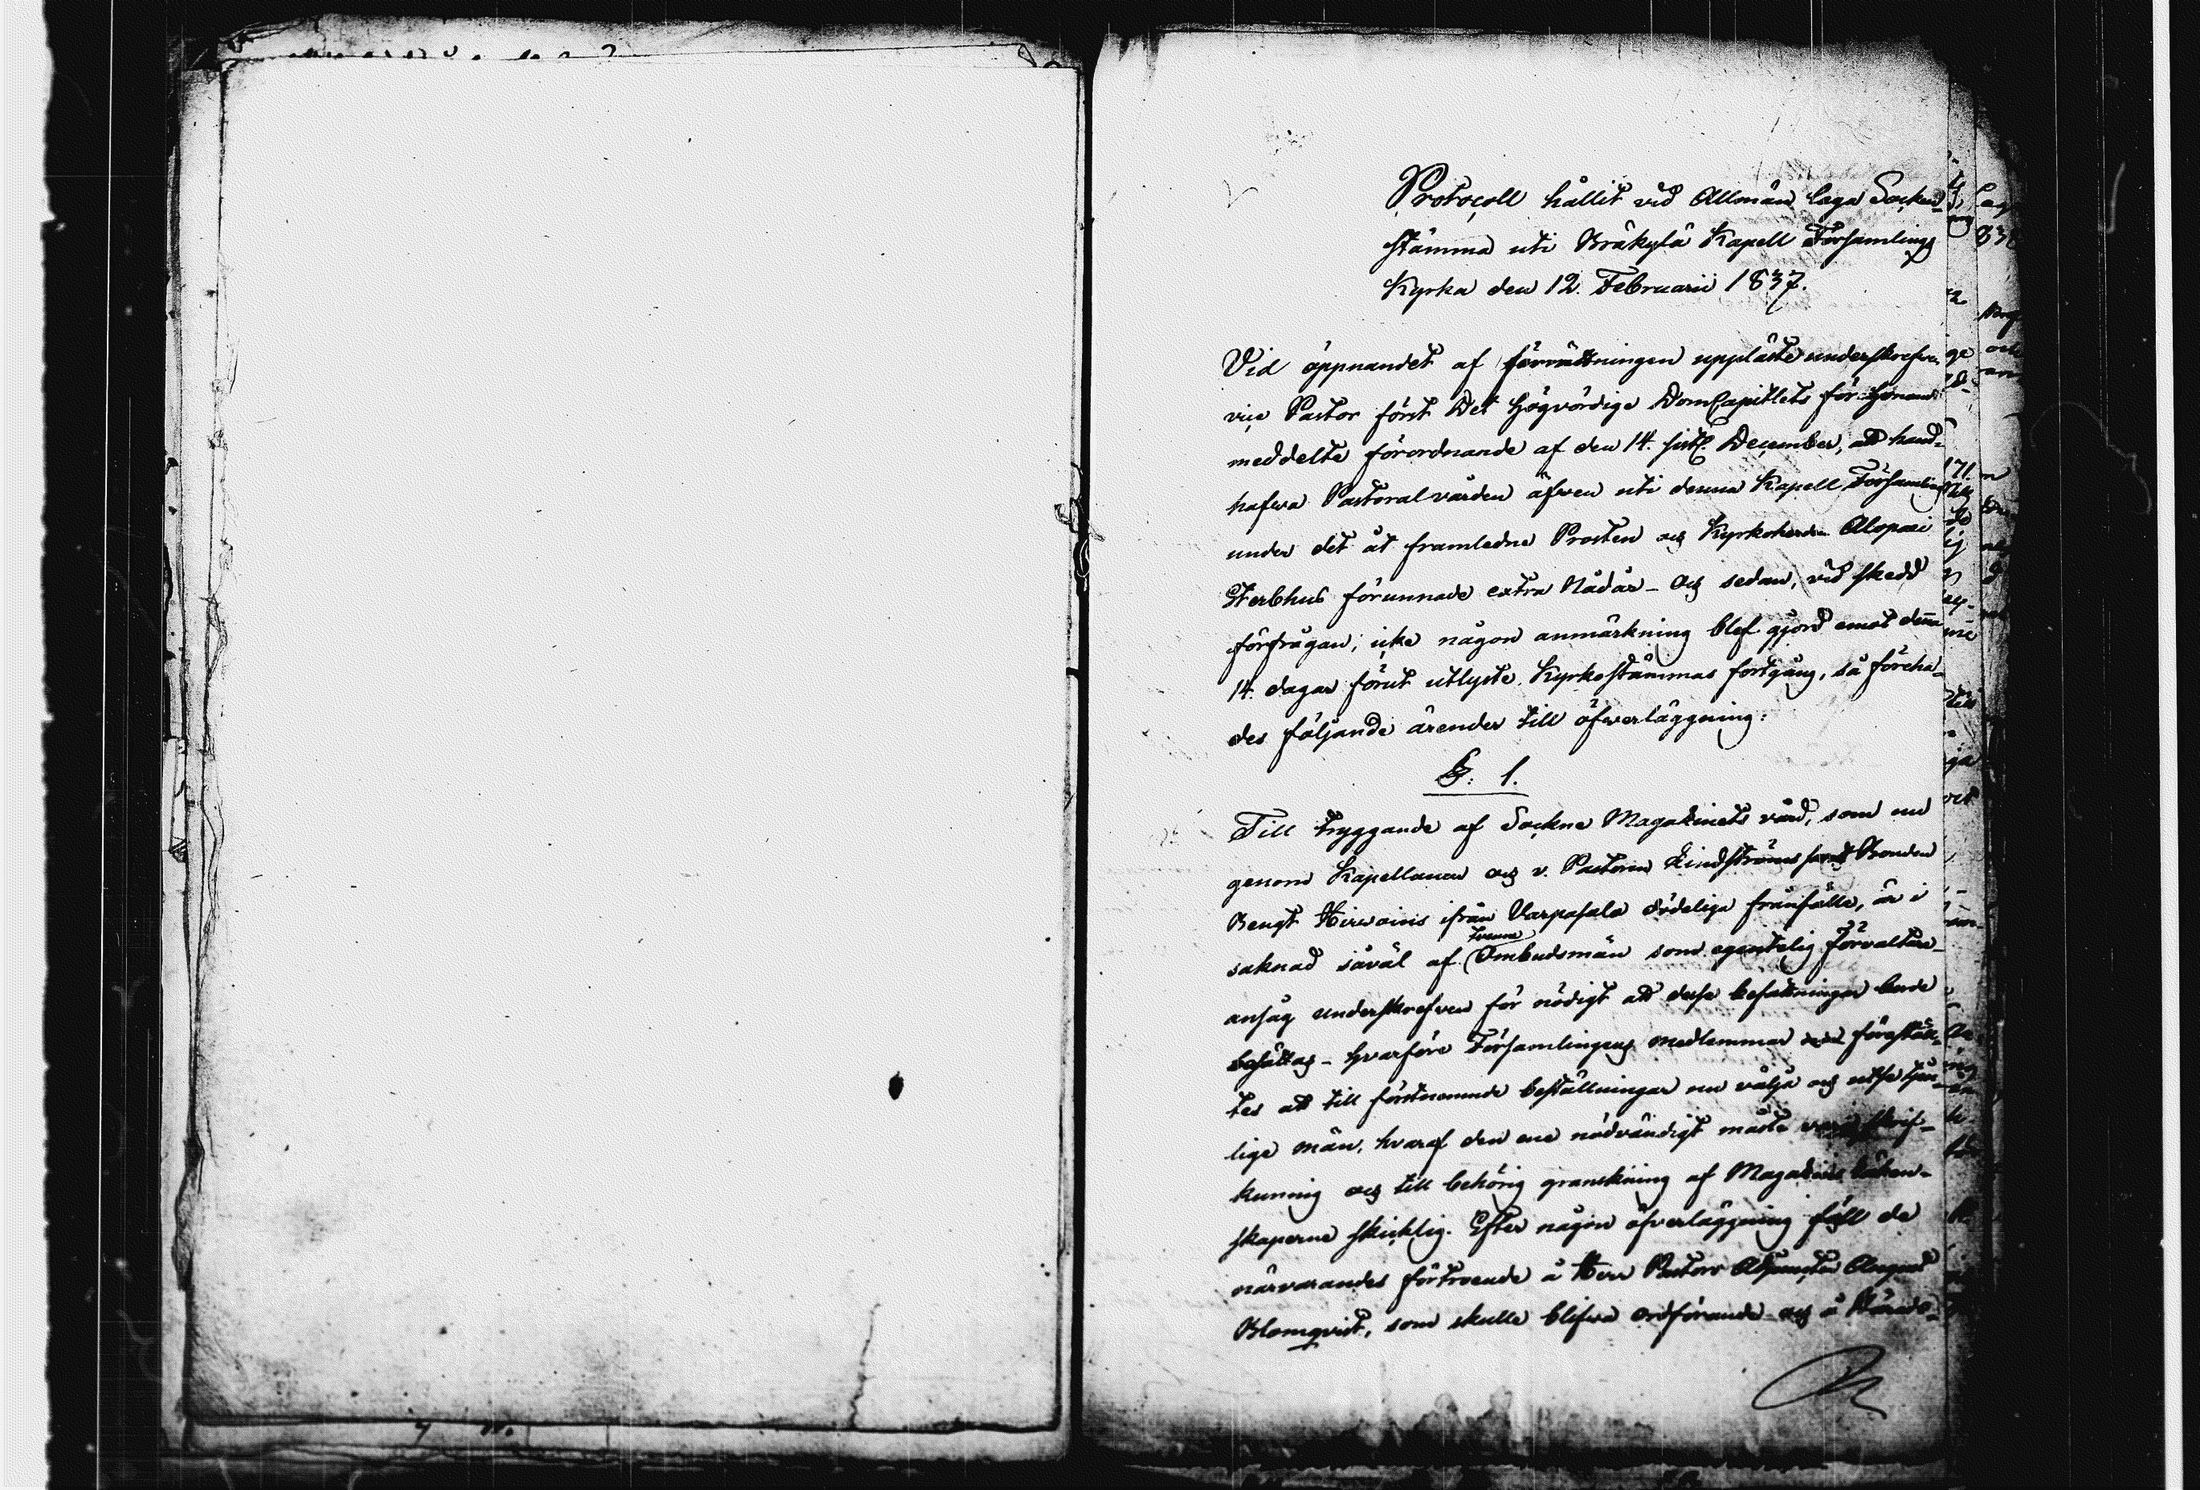 Protocoll hållit vid Allmän laga Socken-
stämma uti Bräkylä Kapell Församlings
Kyrka den 12. Februarii 1837.
Vid öppnandet af förrättningen uppläste underskrefne
vice Pastor först Det Högvördige DomCapitlets för Honom
meddelte förordnande af den 14. sistl. December, att hand-
hafwa Pastoralvården äfven uti denna Kapell Församling
under det åt framledne Prosten och Kyrkoherden Alopaei
Sterbhus förunnade extra Nådår - och sedan, vid skedd
förfrågan, icke någon anmärkning blef gjord emot denna
14. dagar förut utlyste Kyrkostämmas fortgång, så föreha-
des följande ärender till öfwerläggning:
§. 1.
Till tryggande af Sockne Magazinets vård, som nu
genom Kapellanen och v. Pastoren Lindströms samt Bonden
Bengt Hirvoinis ifrån Varpasalo dödeliga frånfälle, är i
saknad såväl af Ombudsmän som egentelig förvaltare
tvenne
ansåg underskrefven för nödigt att dessa befattningar borde
besättas - hvarföre Församlingens medlemmar föreställ-
tes att till förstnämnde beställningar nu välja och utse tjen-
lige män, hvaraf den ene nödvändigt måste vara skrif-
kunnig och till behörig granskning af Magazins räken-
skaperne skicklig. Efter någon öfverläggning föll de
närvarandes förtroende å Herr Pastors Adjuncten August
Blomqvist, som skulle blifva ordförande och å Härads-